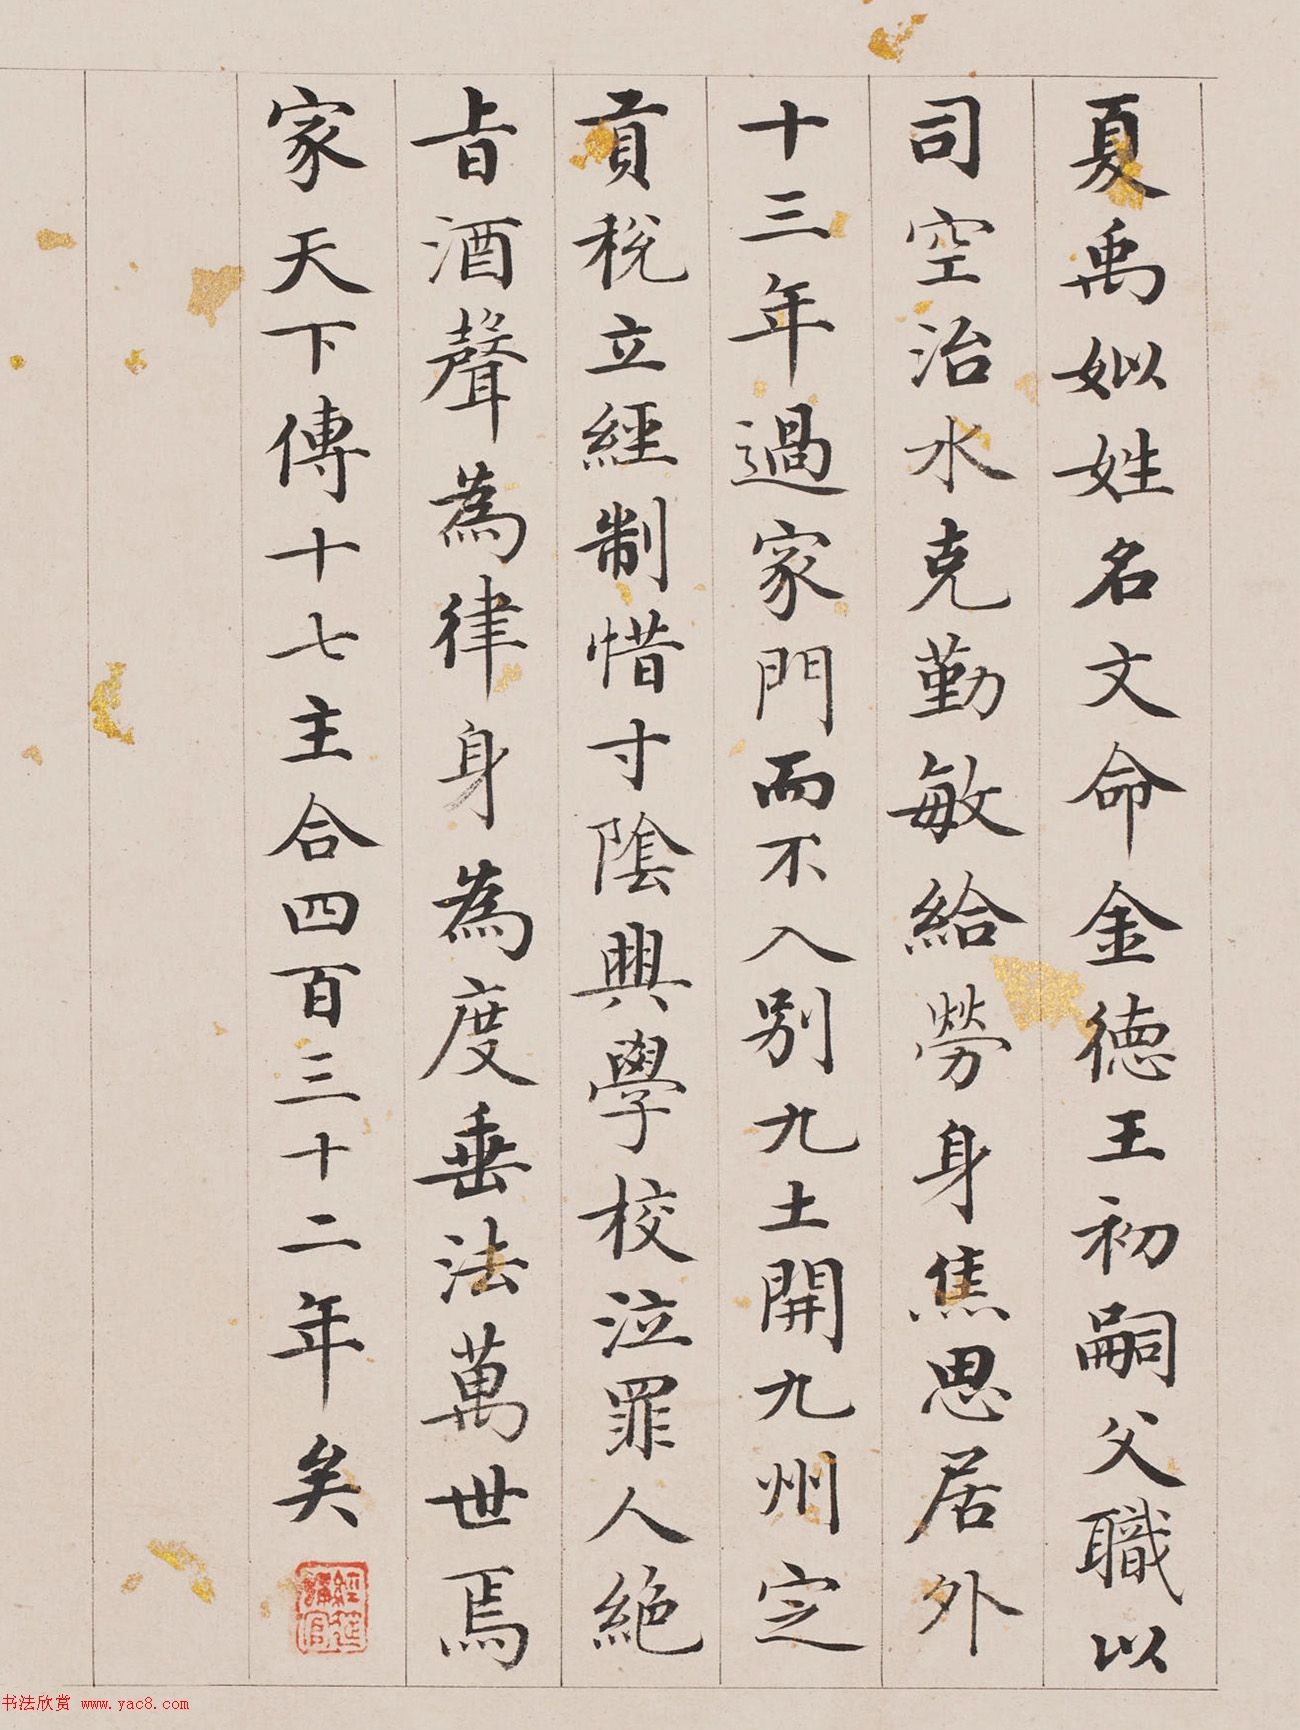 夏禹姒姓名文命金德王初嗣父職以
司空治水克勤敏給勞身焦思居外
十三年過家門而不入别九土開九州定
貢稅立經制惜寸陰興學校泣罪人絕
旨酒聲為律身為度垂法萬世焉
家天下傳十七主合四百三十二年矣
經筵講官
书法欣赏 www.yac8.com